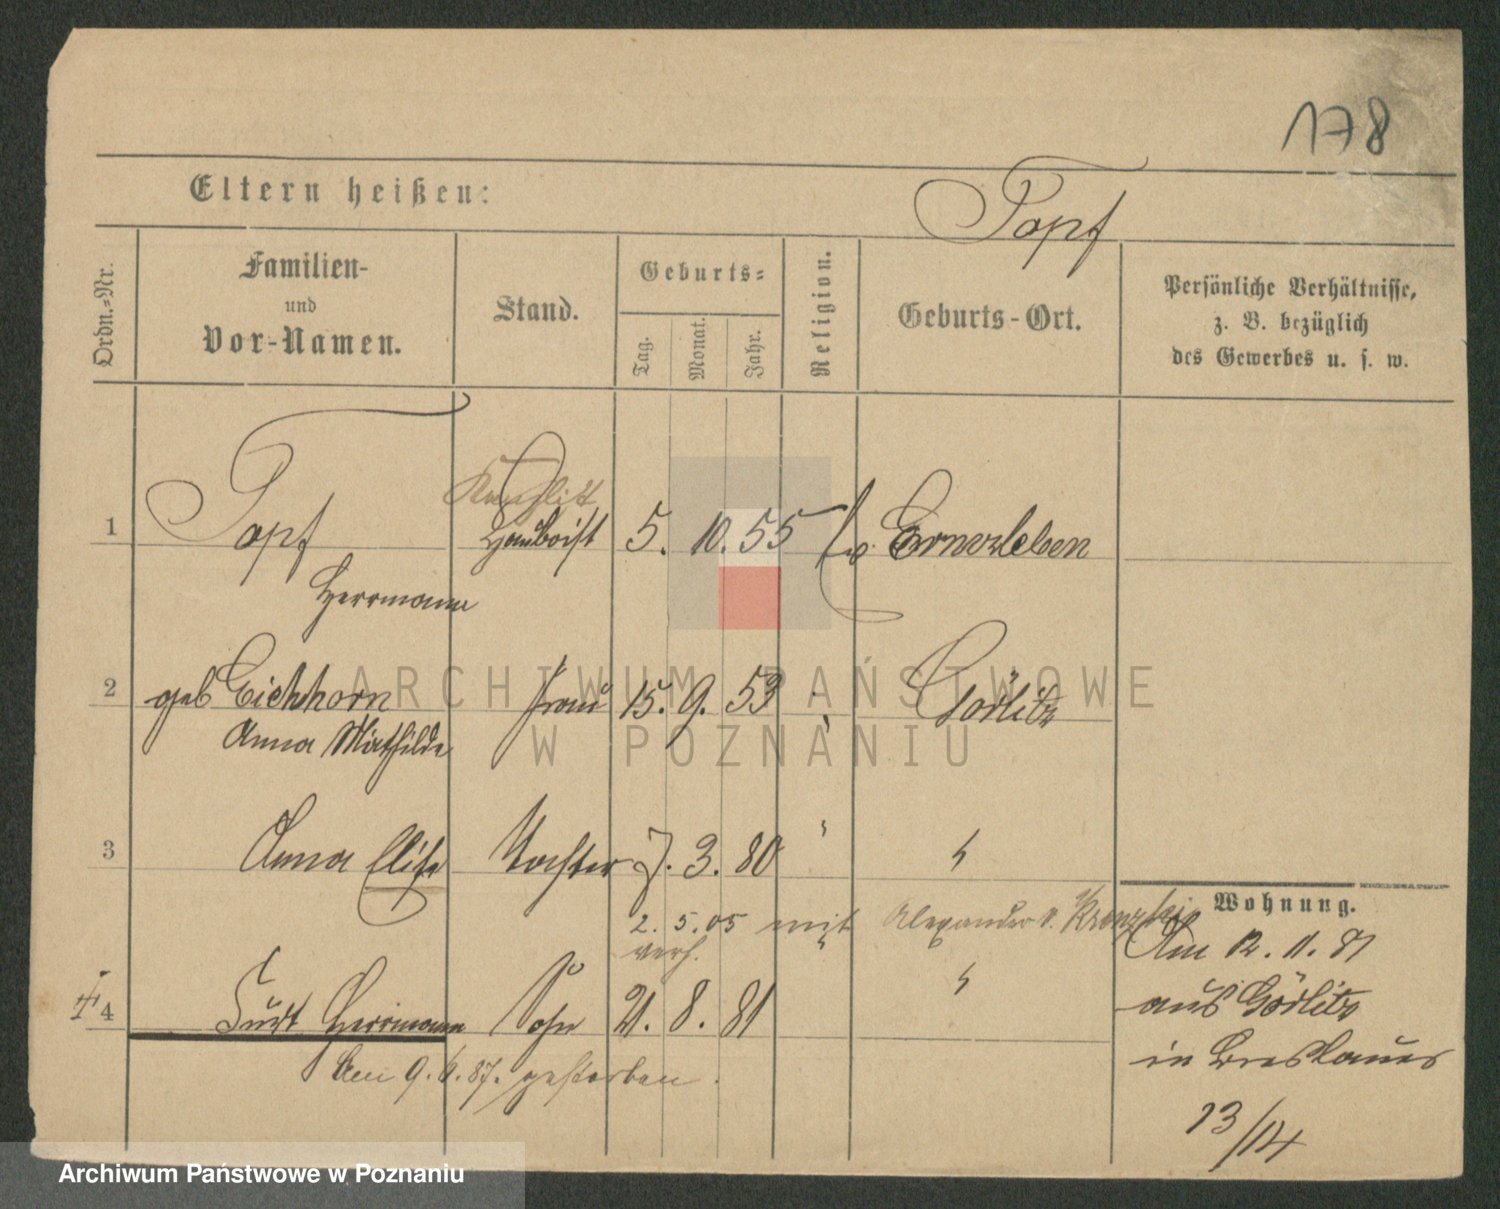 178
Eltern heißen: Topf
Ordn.-Nr.
Familien-
und
Vor-Namen.
Stand.
Geburts-
Tag.
Monat.
Jahr.
Religion.
Geburts-Ort.
Persönliche Verhältnisse,
z. B. bezüglich
des Gewerbes u. s. w.
1 Topf Hauboist 5. 10. 55 ev. Ermsleben
Herrmann
2 geb Eichhorn Frau 15. 9. 53 " Görlitz
Anna Mathilde
3 Anna Elise Tochter 7. 3. 80 " "
2. 5. 05 mit Alexander v.
verh.
4 Curt Herrmann Sohn 21. 8. 81 " "
Am 9. 6. 87. gestorben.
Wohnung.
Am 12. 11. 81
aus Görlitz
in Breslauer
13/14
ARCHIWUM PAŃSTWOWE
W POZNANIU
Archiwum Państwowe w Poznaniu